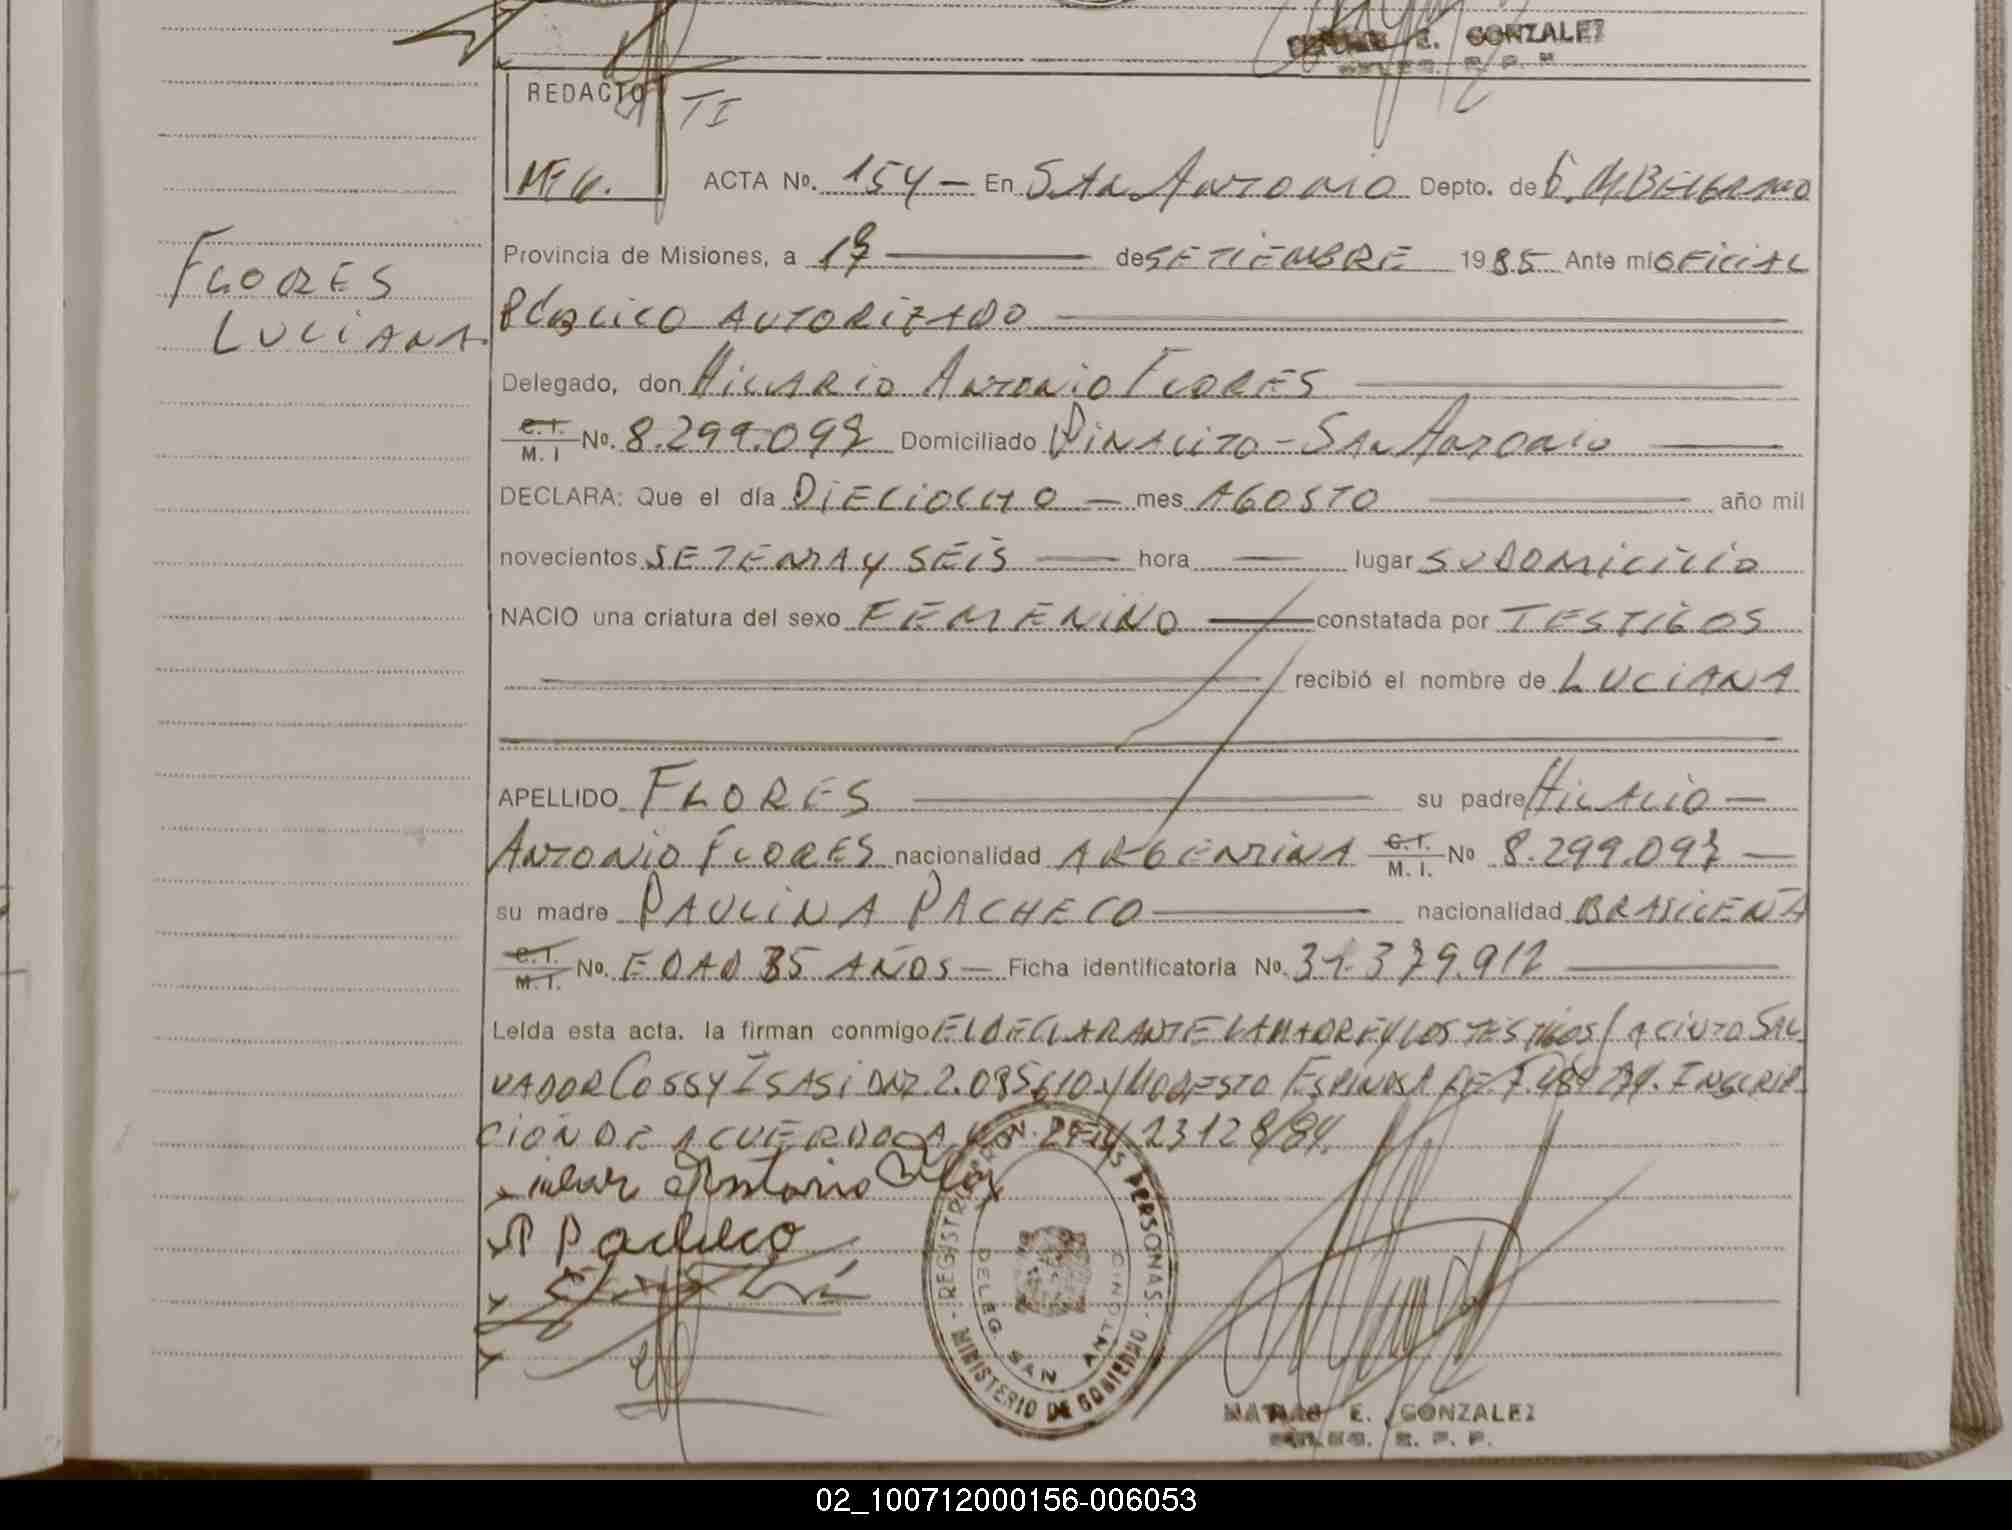 E. GONZALEZ
REDACTO TI
ACTA No. 154 — En SAN ANTONIO Depto. de G. M BELGRANO
Provincia de Misiones, a de SETIEMBRE 1985 Ante mi OFICIAL
FLORES
PUBLICO AUTORIZADO
LUCIANA
Delegado, don HILARIO ANTONIO FLORES
C.I. M. I No. 8.299.097 Domiciliado PINALITO - SAN ANTONIO
DECLARA: Que el día DIECIOCHO — mes AGOSTO año mil
novecientos SETENTA Y SEIS — hora — lugar SU DOMICILIO
NACIO una criatura del sexo FEMENINO constatada por TESTIGOS
recibió el nombre de LUCIANA
APELLIDO FLORES su padre HILARIO —
ANTONIO FLORES nacionalidad ARGENTINA C.I. M. I. No 8.299.097 —
su madre PAULINA PACHECO nacionalidad BRASILEÑA
C.I. M.I. No. EDAD 35 AÑOS — Ficha identificatoria No. 31.379.912
Leída esta acta. la firman conmigo EL DECLARANTE LA MADRE Y LOS TESTIGOS JACINTO SAL
VADOR COSSY ISASI DNI 2.085610 y MODESTO ESPINOSA INSCRIP
CION DE ACUERDO A 23128/84.
Antonio
P Pacheco
REGISTRO PROV. DE LAS PERSONAS
DELEG. SAN ANTONIO
MINISTERIO DE GOBIERNO
E. GONZALEZ
02_100712000156-006053